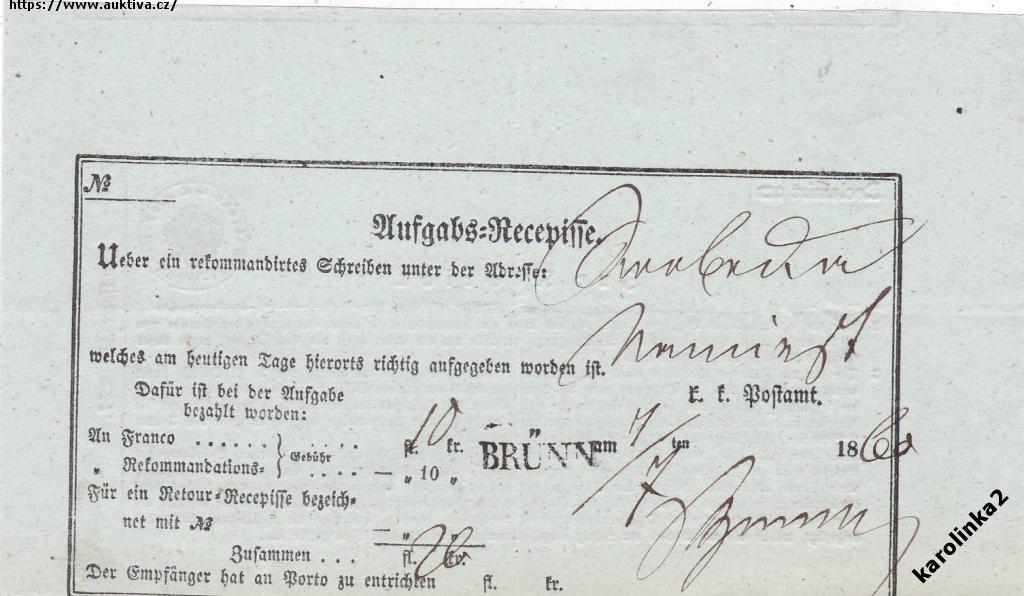 https://www.auktiva.cz/
№
Aufgabs-Recepisse.
Ueber ein rekommandirtes Schreiben unter der Adresse:
Namiest
welches am heutigen Tage hierorts richtig aufgegeben worden ist.
Dafür ist bei der Aufgabe
bezahlt worden:
k. k. Postamt.
An Franco . . . . . . } Gebühr . . . . fl. 10 kr.
„ Rekommandations- . . . . — „ 10 „
BRÜNN am 7/7 ten 1860
Für ein Retour-Recepisse bezeich-
net mit № — „ „
Zusammen . . . fl. 20 kr.
Der Empfänger hat an Porto zu entrichten fl. kr.
karolinka2